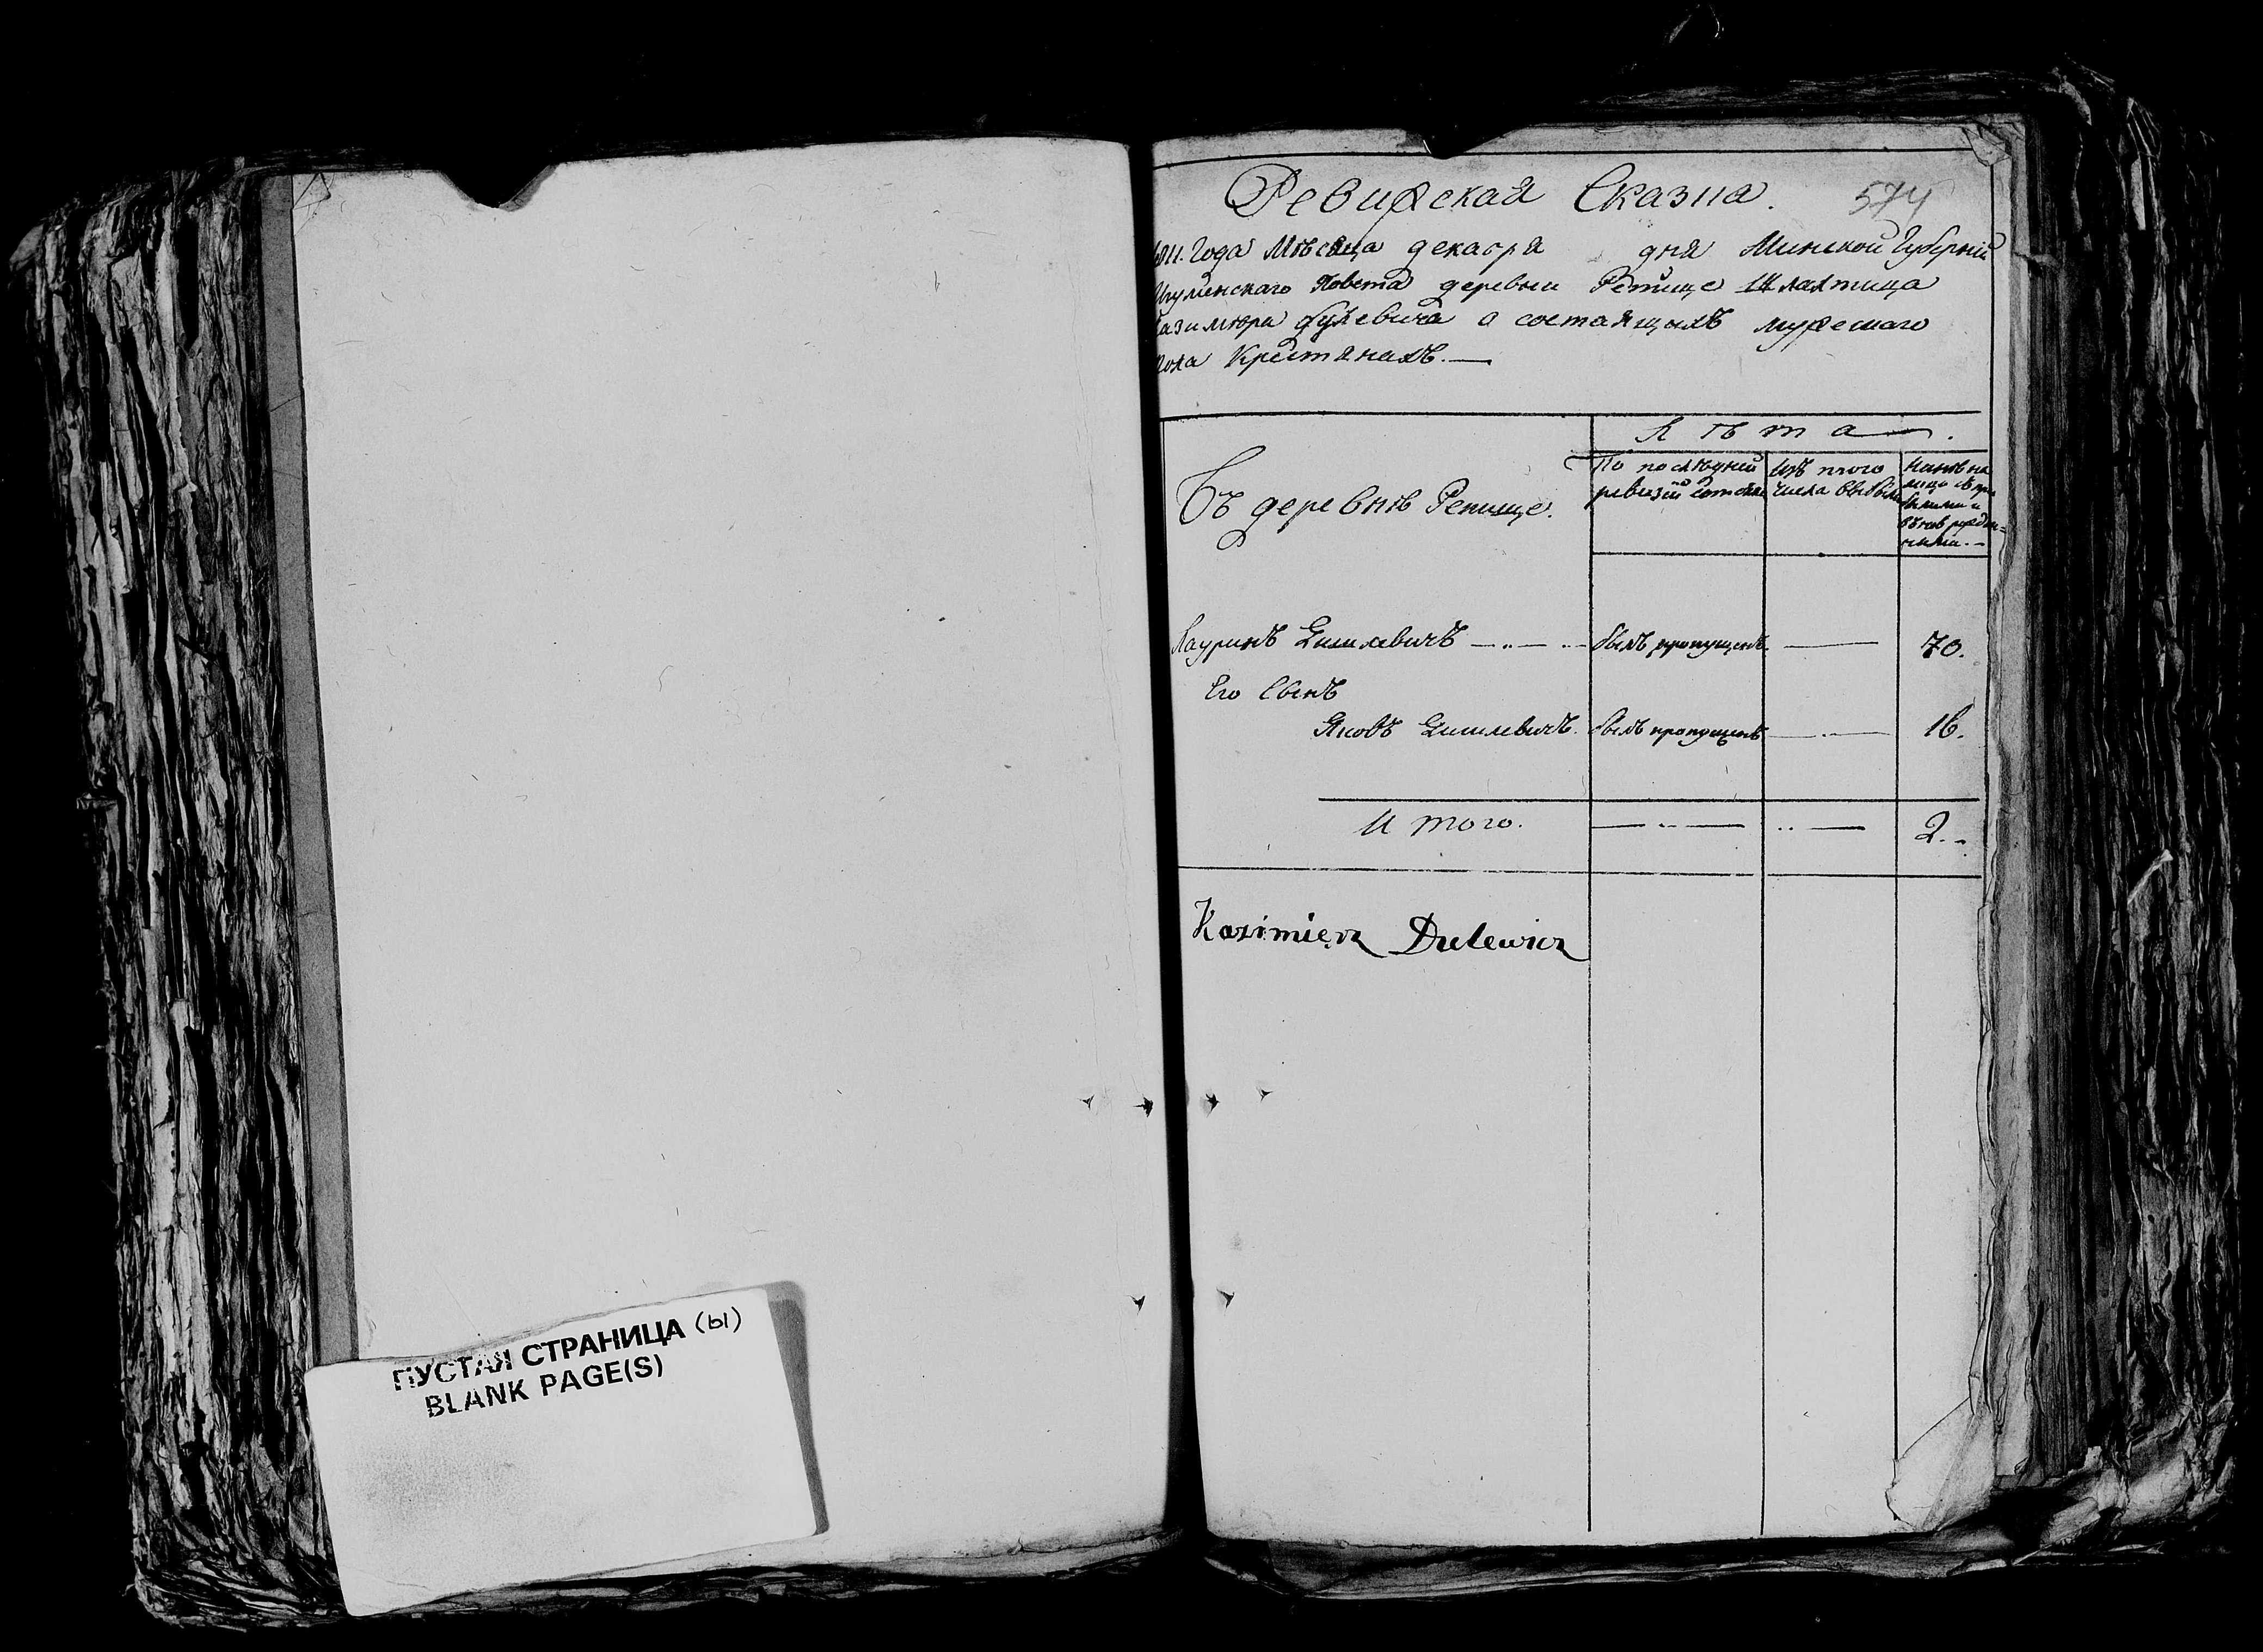 ПУСТАЯ СТРАНИЦА (ы)
BLANK PAGE(S)
Ревижская Сказка. 574
1811. Года Мѣсяца декабря дня Минской Губерніи
Игуменскаго Повета деревни Репище Шляхтица
Казимюра дулевича о состаящыхъ мужескаго
пола Крестянахъ.
Въ деревнѣ Репище.
Лѣта.
По послѣдней ревизіи состояло
Изъ того числа выбыло
Ныне на лицо
Лауринъ былъ пропущенъ 70.
Его Сынъ
Яковъ былъ пропущенъ 16.
Итого. 2.
Kazimierz Dulewicz